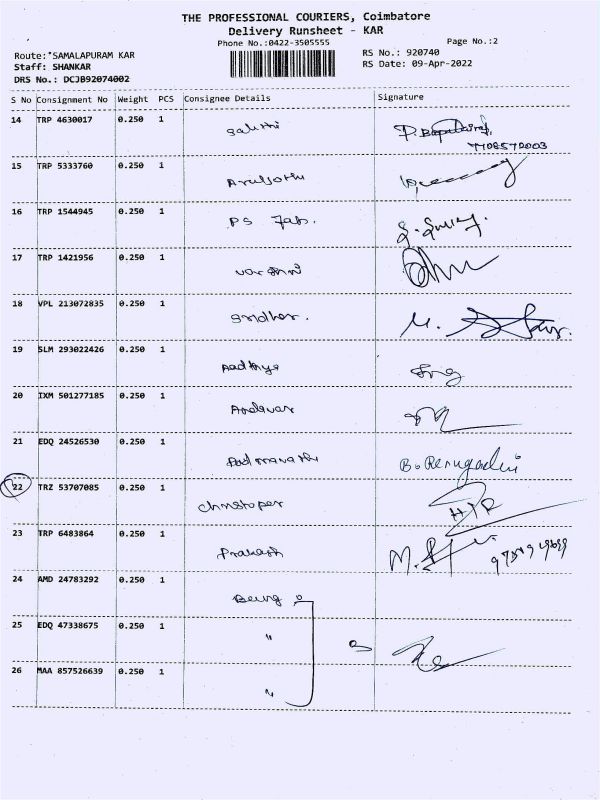 THE PROFESSIONAL COURIERS, Coimbatore
Delivery Runsheet - KAR
Phone No.:0422-3505555
Page No.:2
Route:"SAMALAPURAM KAR
RS No.: 920740
Staff: SHANKAR
RS Date: 09-Apr-2022
DRS No.: DCJB92074002
S No Consignment No Weight PCS Consignee Details Signature
14 TRP 4630017 0.250 1 Sakthi
7708572003
15 TRP 5333760 0.250 1 Aruljothi
16 TRP 1544945 0.250 1 PS Fab.
17 TRP 1421956 0.250 1
18 VPL 213072835 0.250 1 Sridhar.
19 SLM 293022426 0.250 1 Aadhya
20 IXM 501277185 0.250 1 Andavar
21 EDQ 24526530 0.250 1 Padmavathi
22 TRZ 53707085 0.250 1 Christoper
23 TRP 6483864 0.250 1 Prakash
24 AMD 24783292 0.250 1
25 EDQ 47338675 0.250 1 "
26 MAA 857526639 0.250 1 "